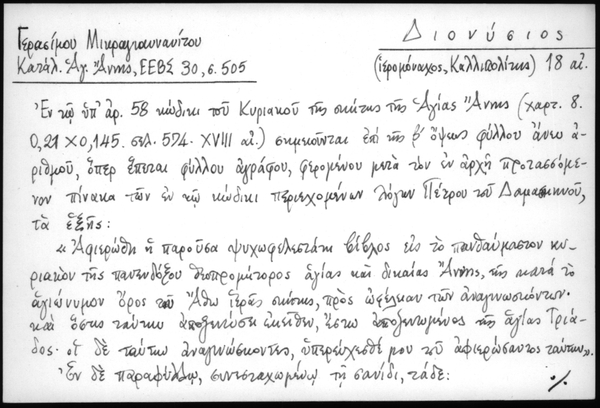 Γερασίμου Μικραγιαννανίτου
Κατάλ. Ἁγ. Ἄννης, ΕΕΒΣ 30, σ. 505
Διονύσιος
(ἱερομόναχος, Καλλιπολίτης) 18 αἰ.
Ἐν τῷ ὑπ' ἀρ. 58 κώδικι τοῦ Κυριακοῦ τῆς σκήτης τῆς Ἁγίας Ἄννης (χαρτ. 8.
0,21 Χ 0,145. σελ. 574. XVIII αἰ.) σημειοῦνται ἐπὶ τῆς β' ὄψεως φύλλου ἄνευ ἀ-
ριθμοῦ, ὅπερ ἕπεται φύλλου ἀγράφου, φερομένου μετὰ τὸν ἐν ἀρχῇ προτασσόμε-
νον πίνακα τῶν ἐν τῷ κώδικι περιεχομένων λόγων Πέτρου τοῦ Δαμασκηνοῦ,
τὰ ἑξῆς:
« Ἀφιερώθη ἡ παροῦσα ψυχωφελεστάτη βίβλος εἰς τὸ πανθαύμαστον κυ-
ριακὸν τῆς πανενδόξου θεοπρομήτορος ἁγίας καὶ δικαίας Ἄννης, τῆς κατὰ τὸ
ἁγιώνυμον ὄρος τοῦ Ἄθω ἱερᾶς σκήτης, πρὸς ὠφέλειαν τῶν ἀναγινωσκόντων·
καὶ ὅστις ταύτην ἀποξενώσει ἐκεῖθεν, ἔστω ἀποξενωμένος τῆς ἁγίας Τριά-
δος· οἱ δὲ ταύτην ἀναγινώσκοντες, ὑπερεύχεσθέ μου τοῦ ἀφιερώσαντος ταύτην».
Ἐν δὲ παραφύλλῳ, συνεσταχωμένῳ τῇ σανίδι, τάδε:
·/.